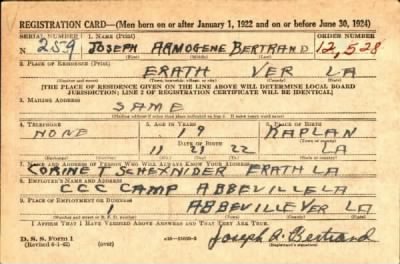 REGISTRATION CARD—(Men born on or after January 1, 1922 and on or before June 30, 1924)
SERIAL NUMBER 1. NAME (Print) ORDER NUMBER
N 259 JOSEPH ARMOGENE BERTRAND 12,528
(First) (Middle) (Last)
2. PLACE OF RESIDENCE (Print)
ERATH VER LA
(Number and street) (Town, township, village, or city) (County) (State)
[THE PLACE OF RESIDENCE GIVEN ON THE LINE ABOVE WILL DETERMINE LOCAL BOARD
JURISDICTION; LINE 2 OF REGISTRATION CERTIFICATE WILL BE IDENTICAL]
3. MAILING ADDRESS
SAME
[Mailing address if other than place indicated on line 2. If same insert word same]
4. TELEPHONE 5. AGE IN YEARS 6. PLACE OF BIRTH
NONE 19 KAPLAN
DATE OF BIRTH (Town or county)
11 21 22 LA
(Exchange) (Number) (Mo.) (Day) (Yr.) (State or country)
7. NAME AND ADDRESS OF PERSON WHO WILL ALWAYS KNOW YOUR ADDRESS
CORINE T SCHEXNIDER ERATH LA
8. EMPLOYER'S NAME AND ADDRESS
CCC CAMP ABBEVILLE LA
9. PLACE OF EMPLOYMENT OR BUSINESS
1 ABBEVILLE VER LA
(Number and street or R. F. D. number) (Town) (County) (State)
I AFFIRM THAT I HAVE VERIFIED ABOVE ANSWERS AND THAT THEY ARE TRUE.
D. S. S. Form 1
(Revised 6-1-42) (over) Joseph A. Bertrand
(Registrant's signature)